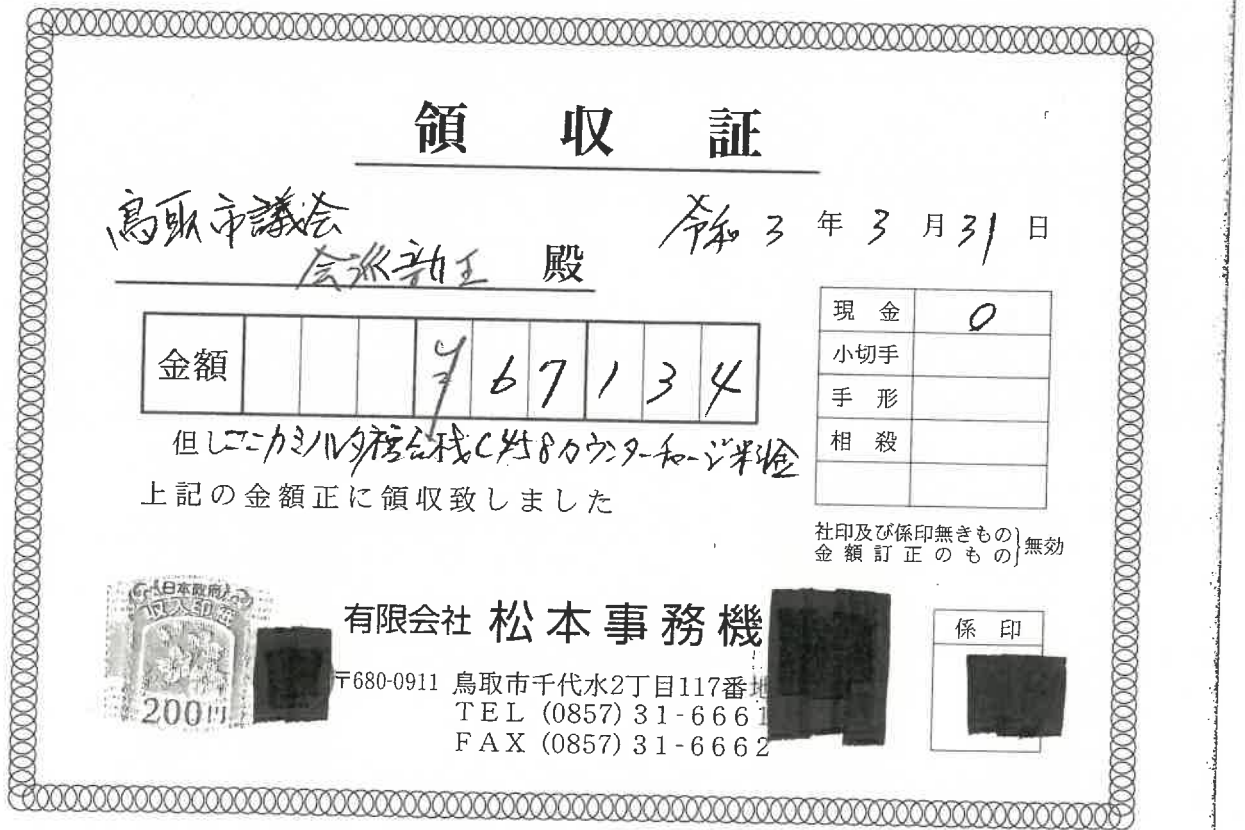 領収証
鳥取市議会
会派新生 殿
令和 3 年 3 月 31 日
金額 ¥67134
但しコニカミノルタ複合機C458カウンターチャージ料金
上記の金額正に領収致しました
現金 0
小切手
手形
相殺
社印及び係印無きもの
金額訂正のもの
無効
日本政府
収入印紙
200円
有限会社 松本事務機
〒680-0911 鳥取市千代水2丁目117番地
TEL (0857) 31-6661
FAX (0857) 31-6662
係印